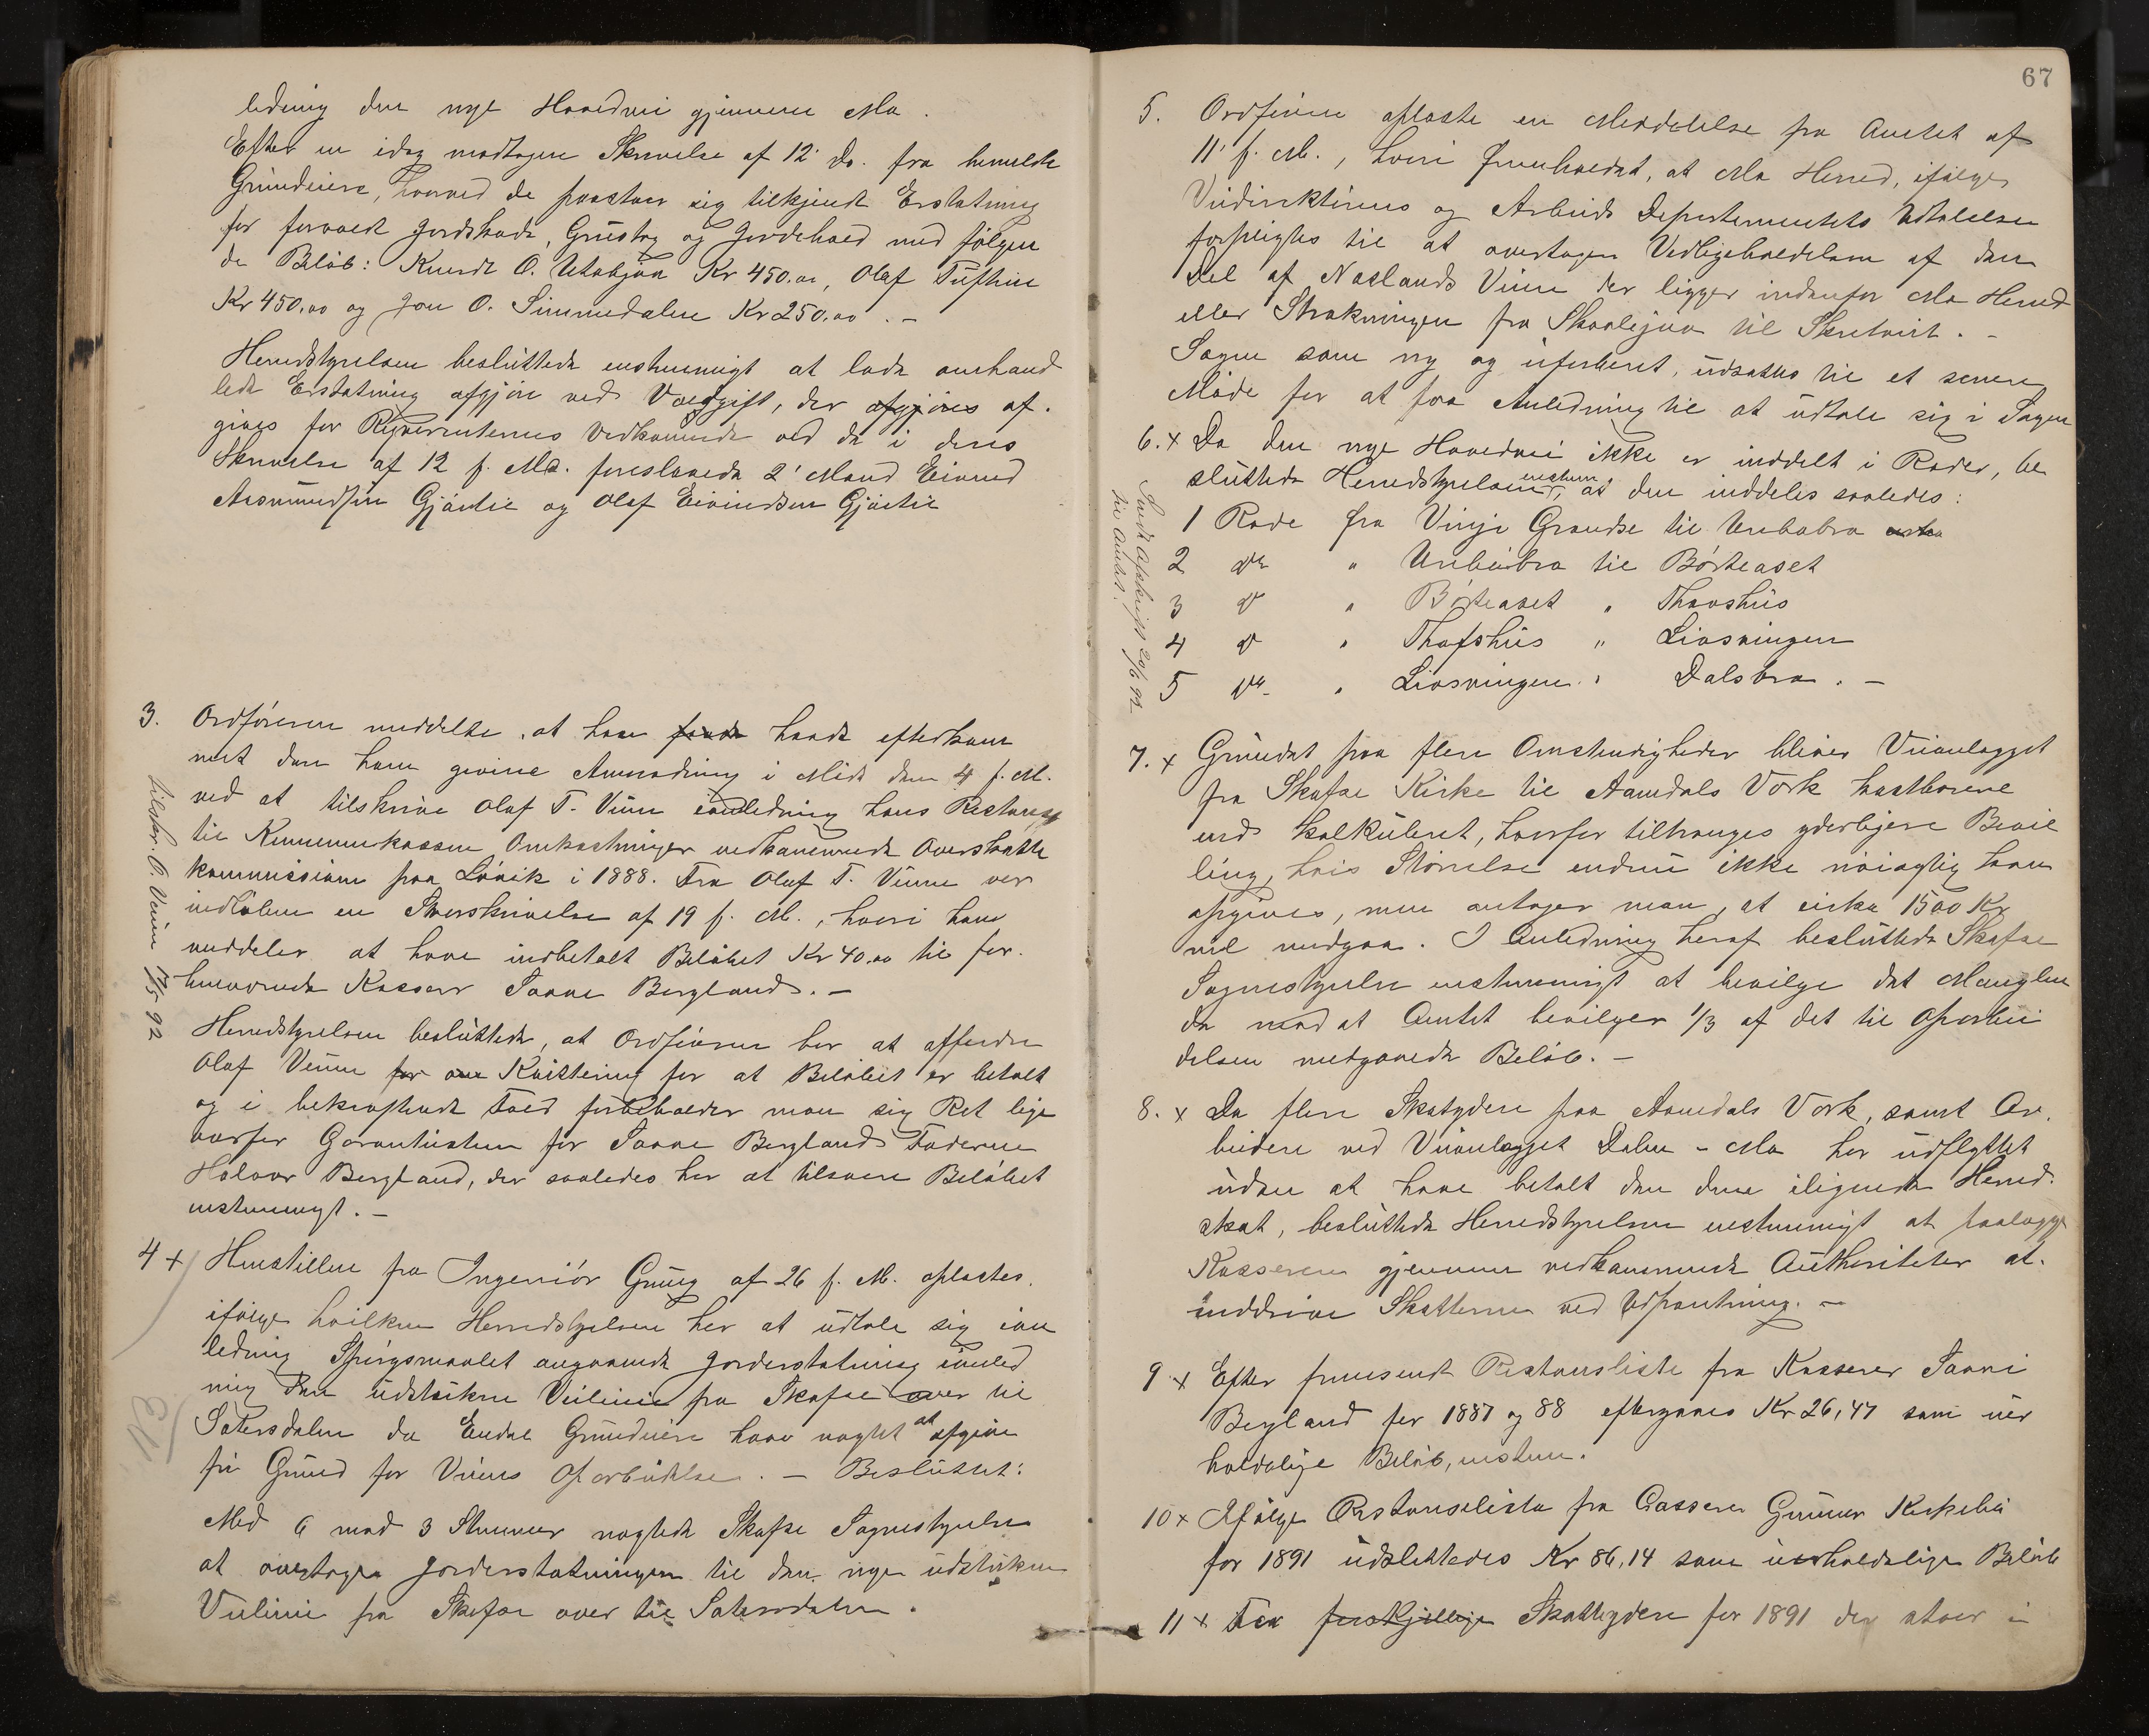 ledning den nye Hovedvei gjennem Mo.
Efter en idag modtagen Skrivelse af 12' ds. fra bemeldte
Grundeiere, hvorved de paastaar sig tilkjendt Erstatning
for forvoldt Jordskade, Grustag og Jordehold med følgen
de Beløb: Knudt O. Utabjaa Kr 450.00, Olaf Tuftene
Kr 450.00 og Jon O. Simmedalen Kr 250.00. –
Herredstyrelsen besluttede enstemmigt at lade omhand
lede Erstatning afgjøre ved Voldgift, der afgjøres af.
gives for Reqvirenternes Vedkommende ved de i deres
Skrivelse af 12 f. Md. foreslaaede 2' Mænd Eivind
Aasmundsen Gjøitil og Olaf Eivindsen Gjøitil
3. Ordføreren meddelte, at han havde efterkom
met den ham givne Anmodning i Møde den 4 f. M.
ved at tilskrive Olaf T. Vinne ianledning hans Restance
til Kommunekassen Omkostninger vedkommende Overskatte
kommissionen paa Løvik i 1888. Fra Olaf T. Vinne var
indløben en Svarskrivelse af 19 f. M., hvori han
meddeler at have indbetalt Beløbet Kr 40.00 til for.
henværende Kasserer Taave Bergland. –
tilskr. O. Vinne 17/5 92
Herredstyrelsen besluttede, at Ordføreren har at affordre
Olaf Vinne for Kvittering for at Beløbet er betalt
og i bekræftende Fald forbeholder man sig Ret lige
overfor Garantisten for Taave Bergland Faderen
Halvor Bergland, der saaledes har at tilsvare Beløbet
enstemmigt. –
4 x Henstillen fra Ingeniør Grung af 26 f. M. oplæstes,
ifølge hvilken Herredstyrelsen har at udtale sig ian
ledning Spørgsmaalet angaaende Jorderstatning ianled
ning den udstukne Veilinie fra Skafse over til
Sætersdalen da Endel Grundeiere have nægtet at afgive
fri Grund for Veiens Oparbeidelse. – Besluttet:
Med 6 mod 3 Stemmer nægtede Skafse Sognestyrelse
at overtage Jorderstatningen til den nye udstukne
Veilinie fra Skafse over til Sætersdalen.
67
5. Ordføreren oplæste en Meddelelse fra Amtet af
11' f. M., hvori fremholdes, at Mo Herred, ifølge
Veidirektørens og Arbeids Departementets Udtalelse
forpligtes til at overtage Vedligeholdelsen af den
Del af Næslands Veien der ligger indenfor Mo Herred
eller Strækningen fra Skaalejuv til Skretveit. –
Sagen som ny og uforberet, udsattes til et senere
Møde for at faa Anledning til at udtale sig i Sagen
6. x Da den nye Hovedvei ikke er inddelt i Roder, be
sluttede Herredstyrelsen enstem., at den inddeles saaledes:
1 Rode fra Vinje Grændse til Urebøbro
2 do " Urebøbro til Børteaset
3 do " Børteaset " Thovshus
4 do " Thofshus " Liosvingen
5 do " Liosvingen " Dalsbro. –
Sendt Afskrift 20/6 92
til Amtet.
7. x Grundet paa flere Omstændigheder bliver Veianlægget
fra Skafse Kirke til Aamdals Værk kostbarere
end kalkuleret, hvorfor tiltrænges yderligere Bevil
ling, hvis Størrelse endnu ikke nøiagtig kan
opgives, men antager man, at cirka 1500 Kr
vil medgaa. I Anledning heraf besluttede Skafse
Sognestyrelse enstemmigt at bevilge det Manglen
de mod at Amtet bevilger 1/3 af det til Oparbei
delsen medgaaede Beløb. –
8. x Da flere Skatydere paa Aamdals Værk, samt Ar.
beidere ved Veianlægget Dalen – Mo har udflyttet
uden at have betalt den dem ilignede Herred.
skat, besluttede Herredstyrelsen enstemmigt at paalægge
Kasseren gjennem vedkommende Authoriteter at.
inddrive Skatterne ved Udpantning. –
9 x Efter fremsendt Restanseliste fra Kasserer Taave
Bergland for 1887 og 88 eftergaves Kr 26,47 som uer
holdelige Beløb, enstem.
10 x Ifølge Restanseliste fra Casserer Gunnar Kirkebø
for 1891 udslettedes Kr 86,14 som uerholdelige Beløb
11 x Fra forskjellige Skatteydere for 1891 der staar i